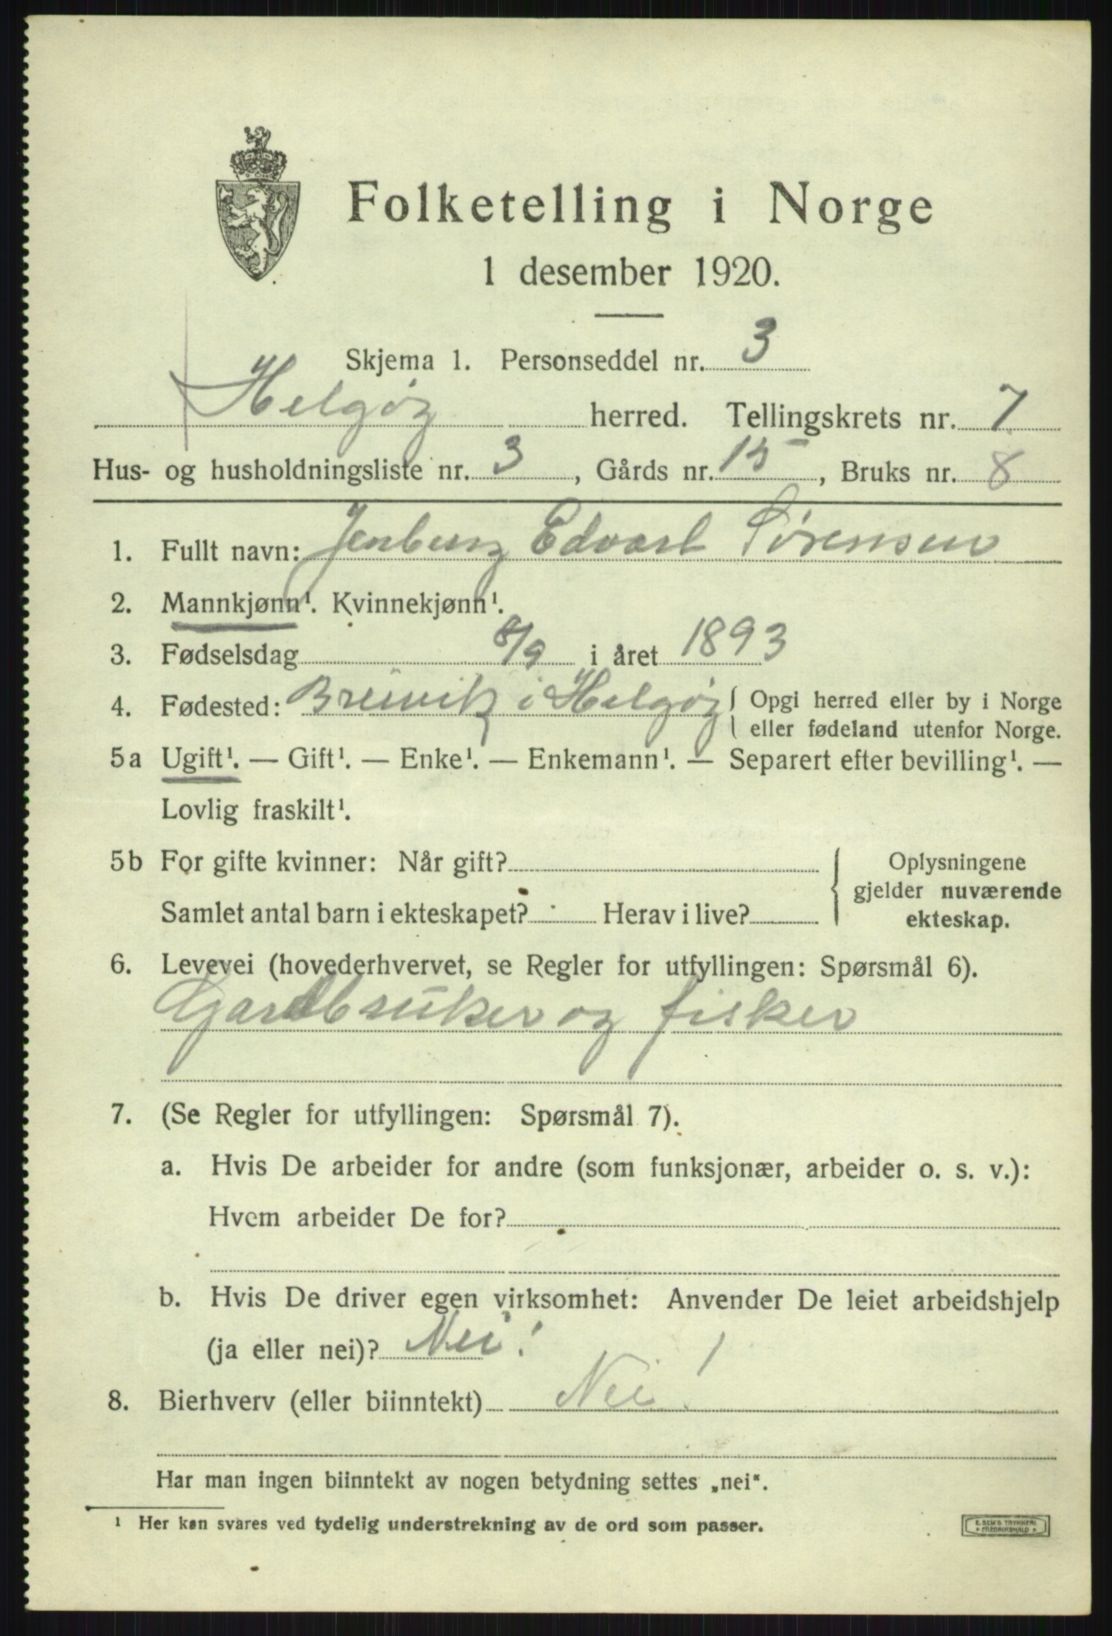 Folketelling i Norge
1 desember 1920.
Skjema 1. Personseddel nr. 3
Helgøy herred. Tellingskrets nr. 7
Hus- og husholdningsliste nr. 3, Gårds nr. 15, Bruks nr. 8
1. Fullt navn: Jenberg Edvart Sørensen
2. Mannkjønn¹. Kvinnekjønn¹.
3. Fødselsdag 8/9 i året 1893
4. Fødested: Breivik i Helgøy { Opgi herred eller by i Norge
eller fødeland utenfor Norge.
5a Ugift¹. — Gift¹. — Enke¹. — Enkemann¹. — Separert efter bevilling¹. —
Lovlig fraskilt¹.
5b For gifte kvinner: Når gift?
Samlet antal barn i ekteskapet? Herav i live?
{ Oplysningene
gjelder nuværende
ekteskap.
6. Levevei (hovederhvervet, se Regler for utfyllingen: Spørsmål 6).
Gardbruker og fisker
7. (Se Regler for utfyllingen: Spørsmål 7).
a. Hvis De arbeider for andre (som funksjonær, arbeider o. s. v.):
Hvem arbeider De for?
b. Hvis De driver egen virksomhet: Anvender De leiet arbeidshjelp
(ja eller nei)? Nei!
8. Bierhverv (eller biinntekt) Nei!
Har man ingen biinntekt av nogen betydning settes „nei“.
¹ Her kan svares ved tydelig understrekning av de ord som passer.
E. SEM'S TRYKKERI
• FREDRIKSHALD •